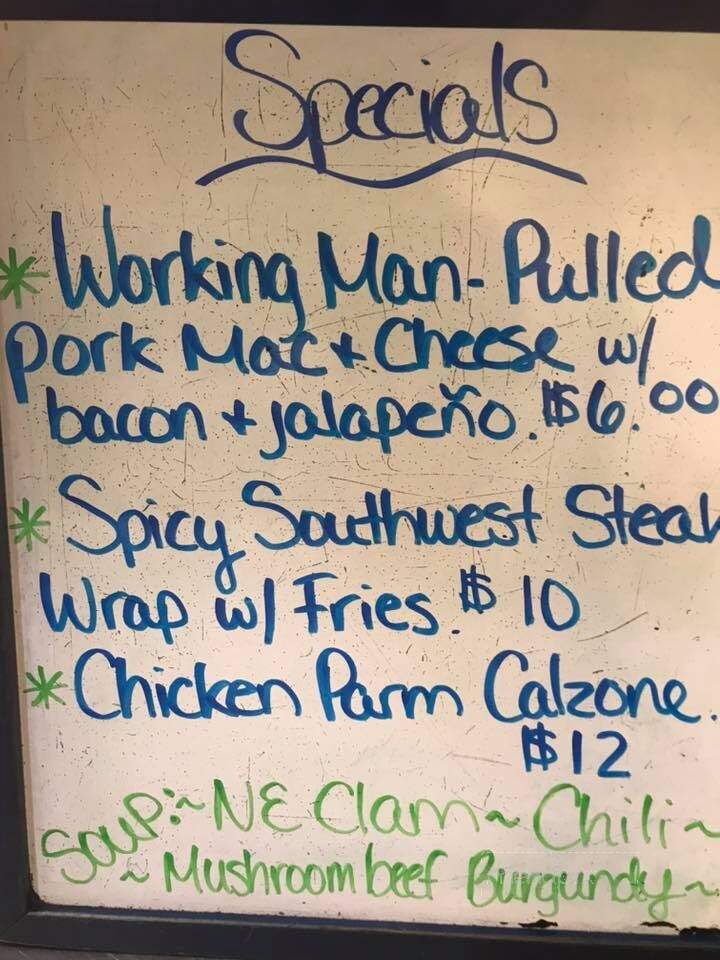 Specials
* Working Man - Pulled
Pork Mac + Cheese w/
bacon + jalapeño. $6.00
* Spicy Southwest Steak
Wrap w/ Fries. $10
* Chicken Parm Calzone.
$12
Soup: ~ NE Clam ~ Chili ~
~ Mushroom beef Burgundy ~